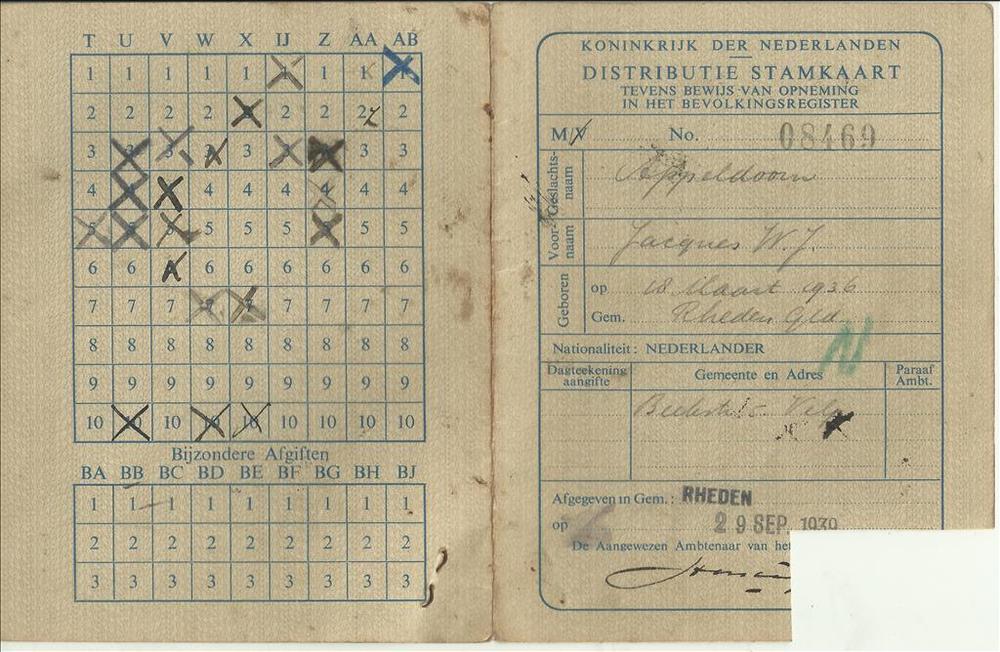 T U V W X IJ Z AA AB
1 1 1 1 1 1 1 1 1
2 2 2 2 2 2 2 2 2
3 3 3 3 3 3 3 3 3
4 4 4 4 4 4 4 4 4
5 5 5 5 5 5 5 5 5
6 6 6 6 6 6 6 6 6
7 7 7 7 7 7 7 7 7
8 8 8 8 8 8 8 8 8
9 9 9 9 9 9 9 9 9
10 10 10 10 10 10 10 10 10
Bijzondere Afgiften
BA BB BC BD BE BF BG BH BJ
1 1 1 1 1 1 1 1 1
2 2 2 2 2 2 2 2 2
3 3 3 3 3 3 3 3 3
KONINKRIJK DER NEDERLANDEN
DISTRIBUTIE STAMKAART
TEVENS BEWIJS VAN OPNEMING
IN HET BEVOLKINGSREGISTER
M/V No. 08469
Geslachts-
naam
Appeldoorn
Voor-
naam
Jacques W. J.
Geboren
op 18 Maart 1936
Gem. Rheden Gld
Nationaliteit: NEDERLANDER
Dagteekening
aangifte
Gemeente en Adres
Paraaf
Ambt.
Velp
Afgegeven in Gem.: RHEDEN
op 29 SEP. 1939
De Aangewezen Ambtenaar van het